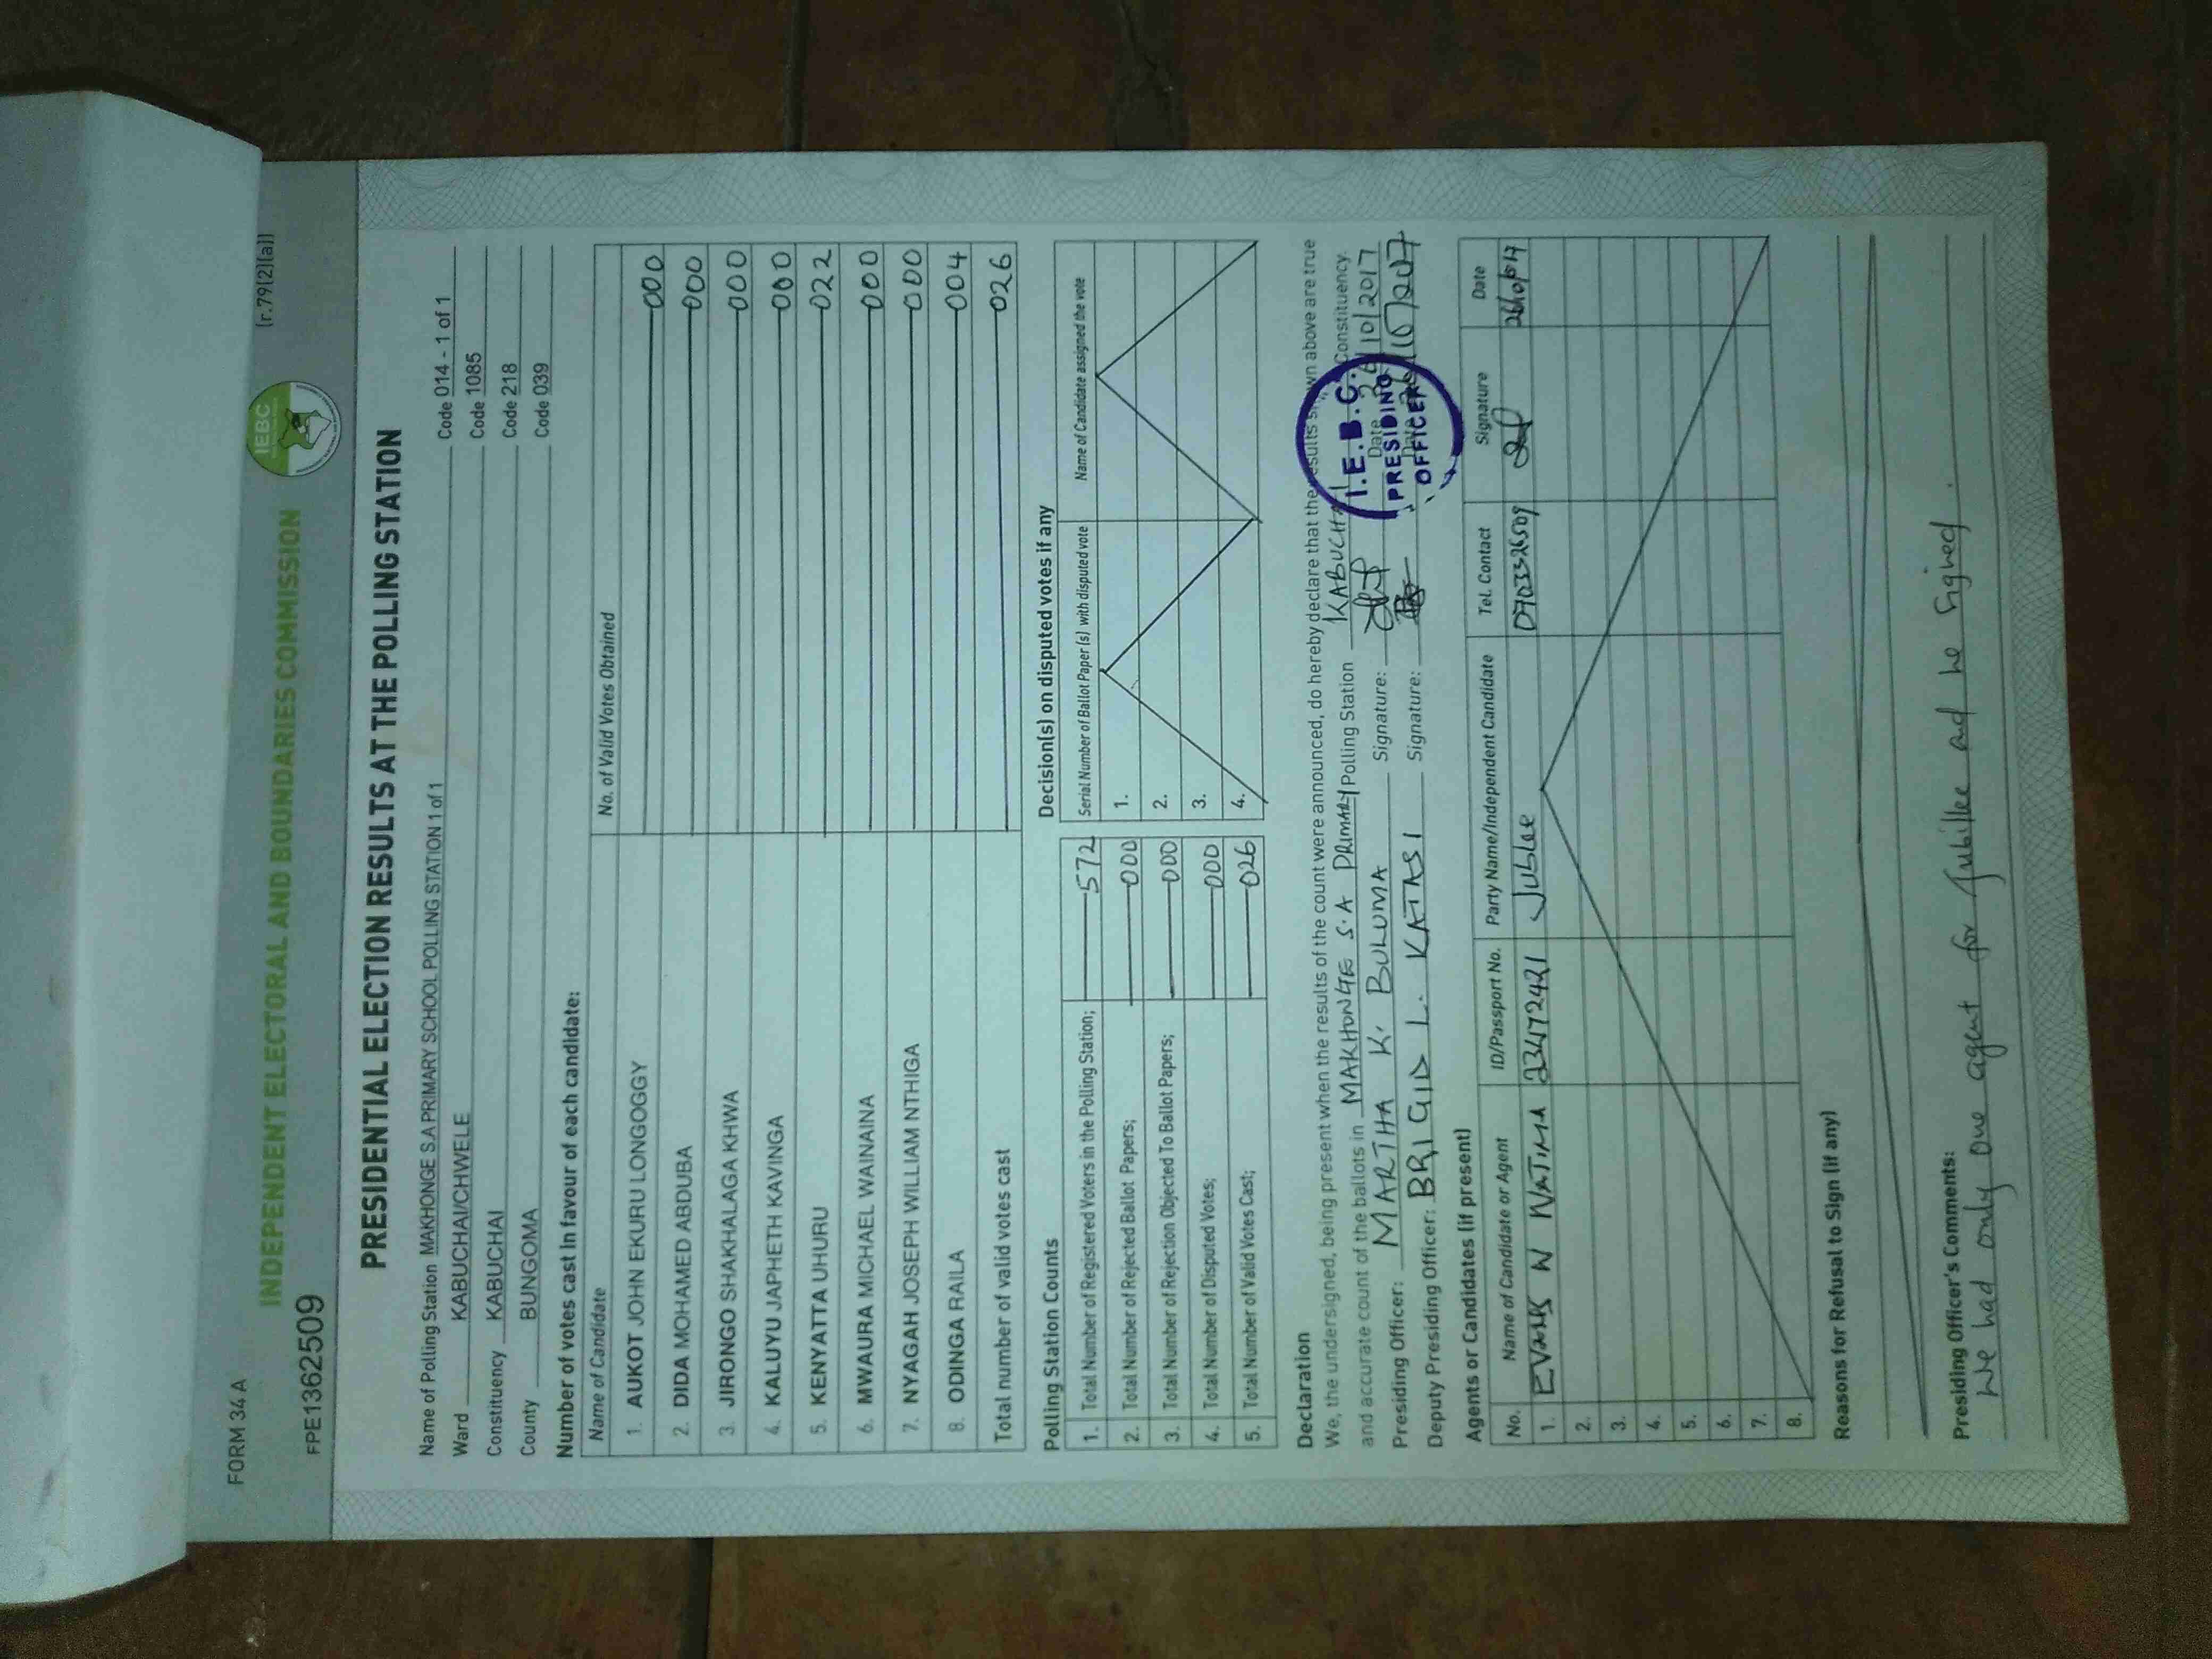 FORM 34 A
(r.79(2)(a))
INDEPENDENT ELECTORAL AND BOUNDARIES COMMISSION
IEBC
FPE1362509
PRESIDENTIAL ELECTION RESULTS AT THE POLLING STATION
Name of Polling Station MAKHONGE S.A PRIMARY SCHOOL POLLING STATION 1 of 1 Code 014 - 1 of 1
Ward KABUCHAI/CHWELE Code 1085
Constituency KABUCHAI Code 218
County BUNGOMA Code 039
Number of votes cast in favour of each candidate:
Name of Candidate No. of Valid Votes Obtained
1. AUKOT JOHN EKURU LONGOGGY 000
2. DIDA MOHAMED ABDUBA 000
3. JIRONGO SHAKHALAGA KHWA 000
4. KALUYU JAPHETH KAVINGA 000
5. KENYATTA UHURU 022
6. MWAURA MICHAEL WAINAINA 000
7. NYAGAH JOSEPH WILLIAM NTHIGA 000
8. ODINGA RAILA 004
Total number of valid votes cast 026
Polling Station Counts
1. Total Number of Registered Voters in the Polling Station; 572
2. Total Number of Rejected Ballot Papers; 000
3. Total Number of Rejection Objected To Ballot Papers; 000
4. Total Number of Disputed Votes; 000
5. Total Number of Valid Votes Cast; 026
Decision(s) on disputed votes if any
Serial Number of Ballot Paper (s) with disputed vote Name of Candidate assigned the vote
1.
2.
3.
4.
Declaration
We, the undersigned, being present when the results of the count were announced, do hereby declare that the results shown above are true
and accurate count of the ballots in MAKHONGE S.A PRIMARY Polling Station KABUCHAI Constituency.
Presiding Officer: MARTHA K. BULUMA Signature: Date 26/10/2017
Deputy Presiding Officer: BRIGID L. KATASI Signature: Date 26/10/2017
I.E.B.C.
PRESIDING
OFFICER
Agents or Candidates (if present)
No. Name of Candidate or Agent ID/Passport No. Party Name/Independent Candidate Tel. Contact Signature Date
1. EVANS W WATIMA 23472421 Jublee 0703326509
2.
3.
4.
5.
6.
7.
8.
Reasons for Refusal to Sign (if any)
Presiding Officer's Comments:
We had only one agent for Jubillee ad he signed.